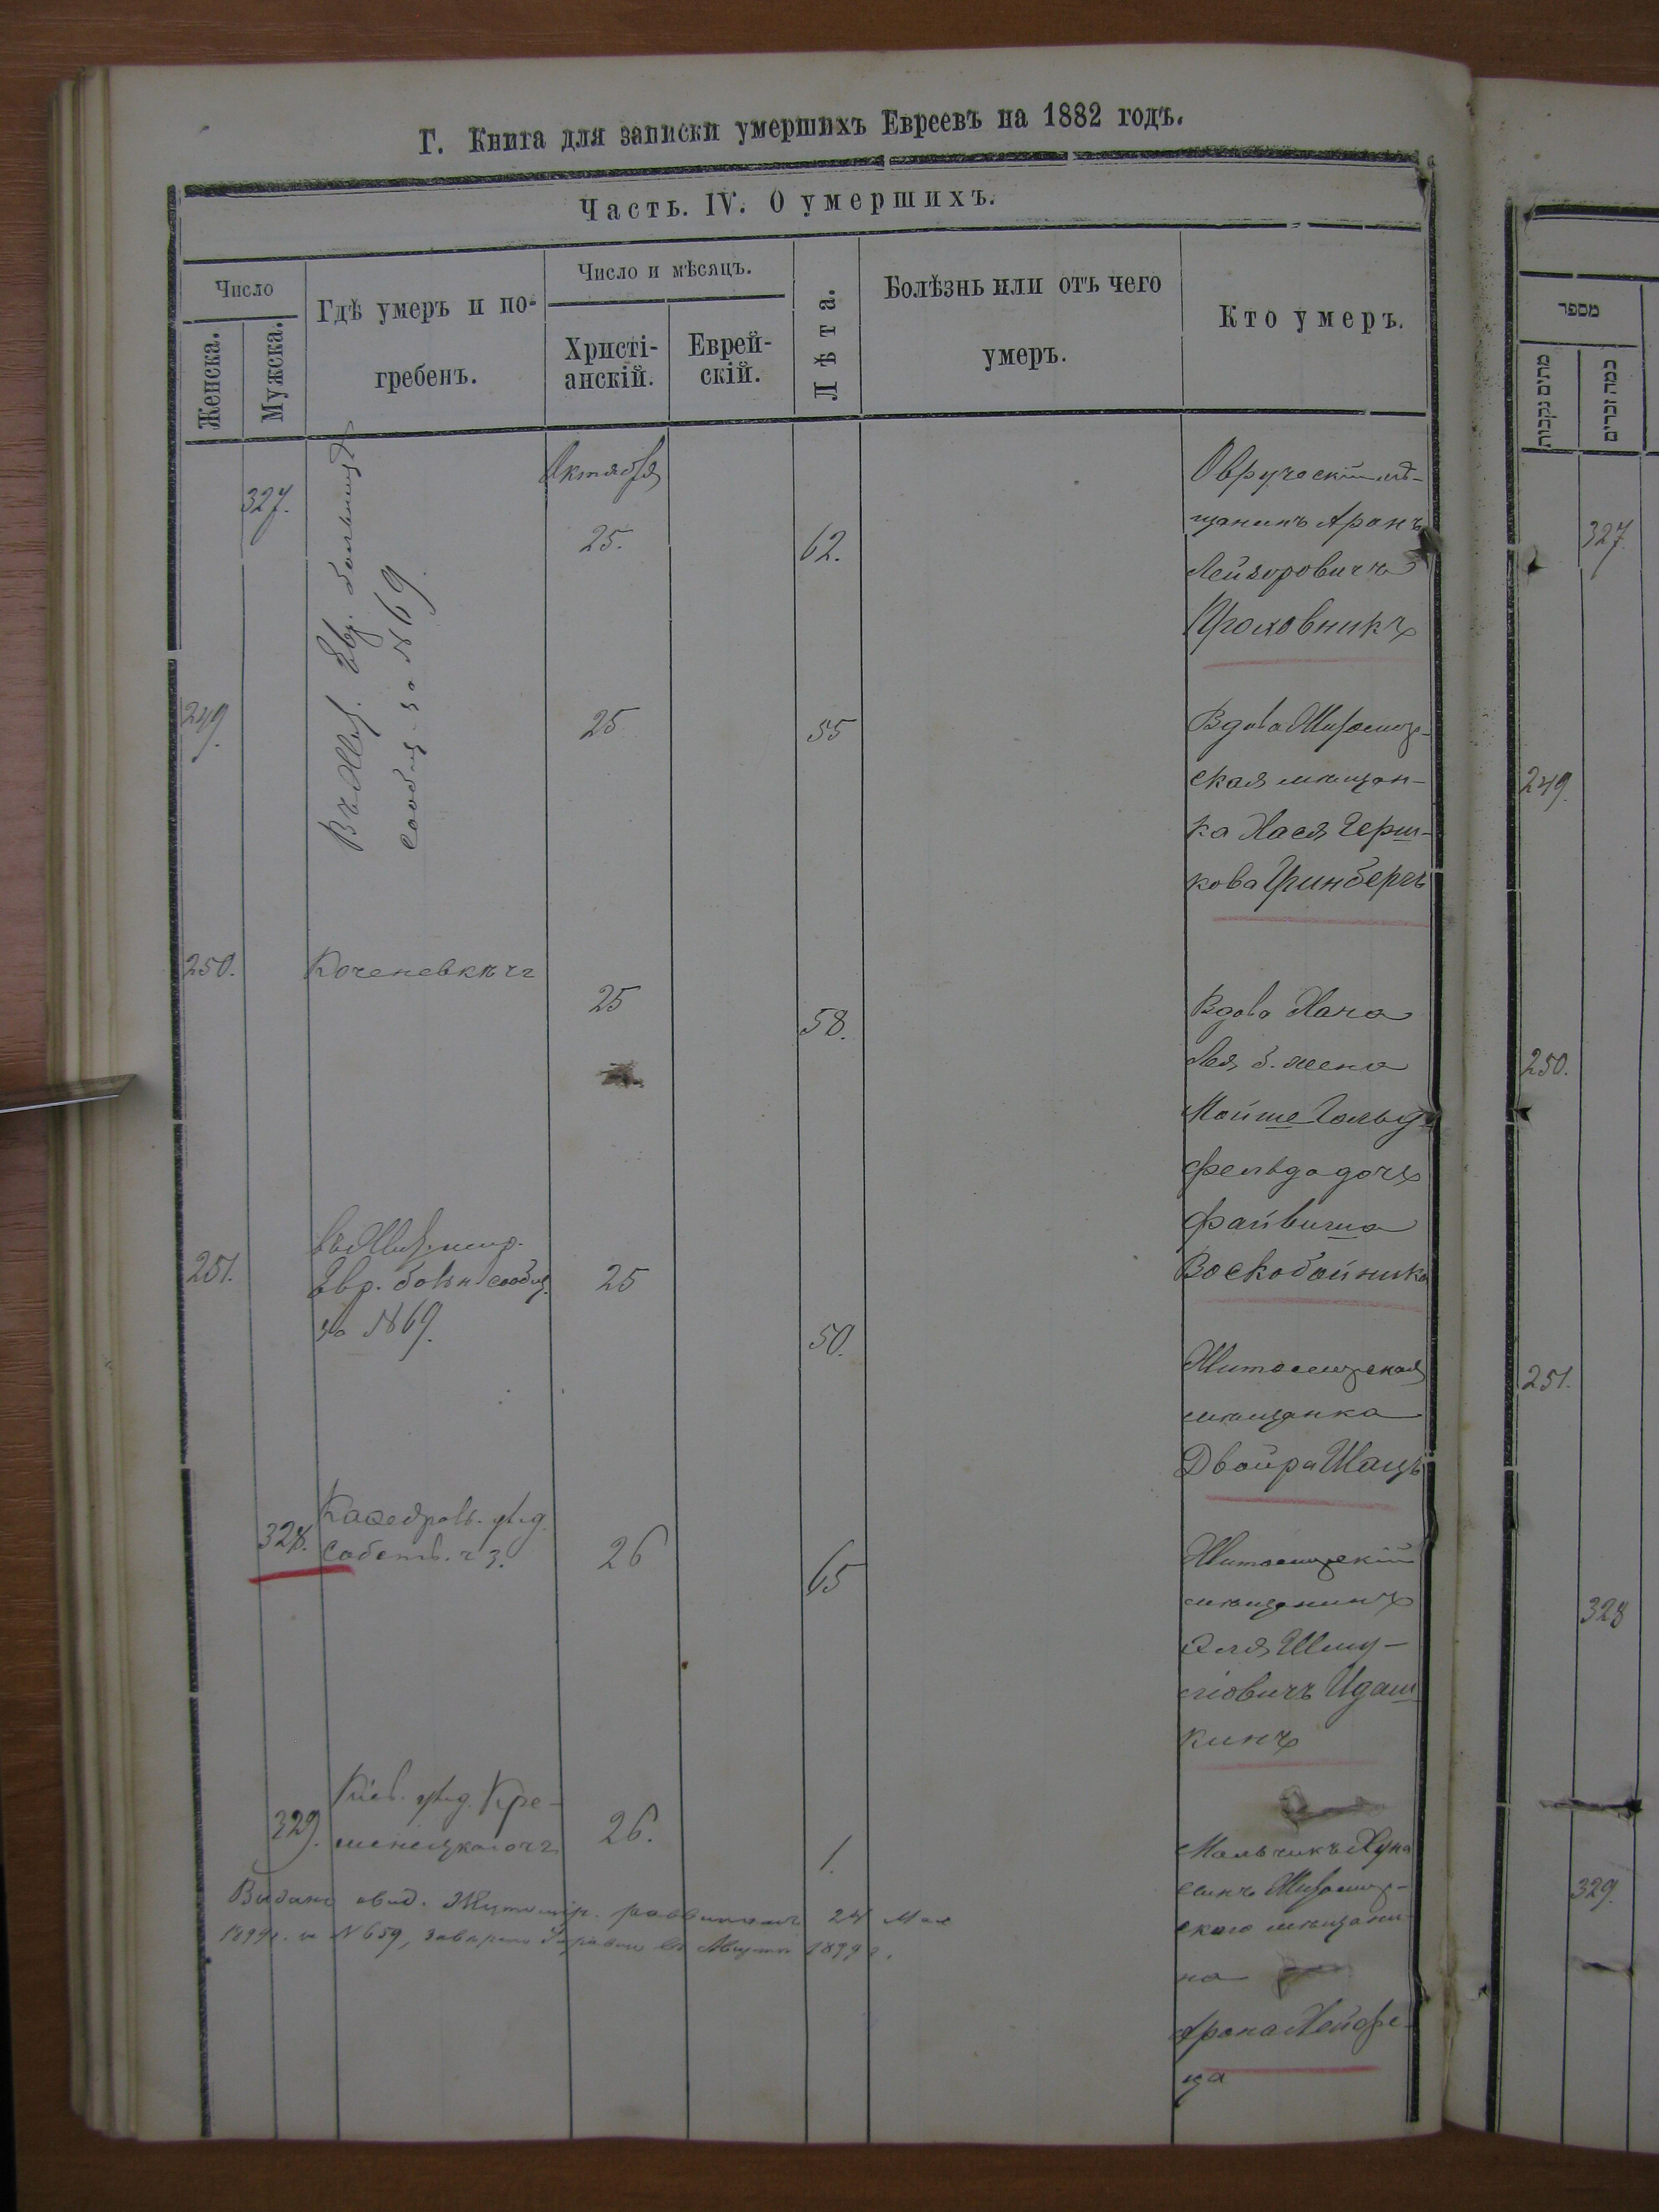 Г. Книга для записки умершихъ Евреевъ на 1882 годъ.
Часть. IV. О умершихъ.
Число
Женска.
Мужска.
Гдѣ умеръ и по-
гребенъ.
Число и мѣсяцъ.
Христі-
анскій.
Еврей-
скій.
Лѣта.
Болѣзнь или отъ чего
умеръ.
Кто умеръ.
327.
Въ Жит. Евр. больницѣ
сообщ. за №69.
Октября
25.
62.
Овруческій мѣ-
щанинъ Аронъ
Лейзоровичъ
249.
25
55
Вдова Житомир-
ская мѣщан-
ка Хася Герш-
кова Гринбергъ
250.
25
58.
Вдова Хана
Лея б. жена
Мойше Гольд-
фельда дочь
Файвиша
Воскобойника
251.
въ Житомир.
Евр. больн. сообщ.
за №69.
25
50.
Житомирская
мѣщанка
Двойра Шацъ
328.
Кафедральн.
собств. ч 3.
26
65
Житомирскій
мѣщанинъ
Эля Шму-
ліовичъ Идаш
кинъ
329.
Кре-
менецкаго
26.
1.
Мальчикъ Хуна
сынъ Житомир-
скаго мѣщани-
на
Арона Хейфе-
ца
Выдано свид. Житомір. раввиномъ 24 Мая
1899г. за №659, 1899 г.
מספר
מתים נקבות
כמה זכרים
327
249.
250.
251.
328
329.